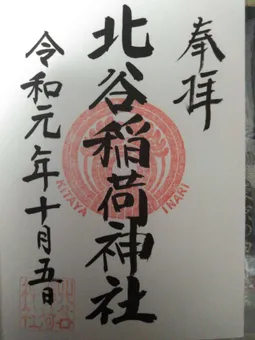 奉拝
北谷稲荷神社
KITAYA INARI
令和元年十月五日